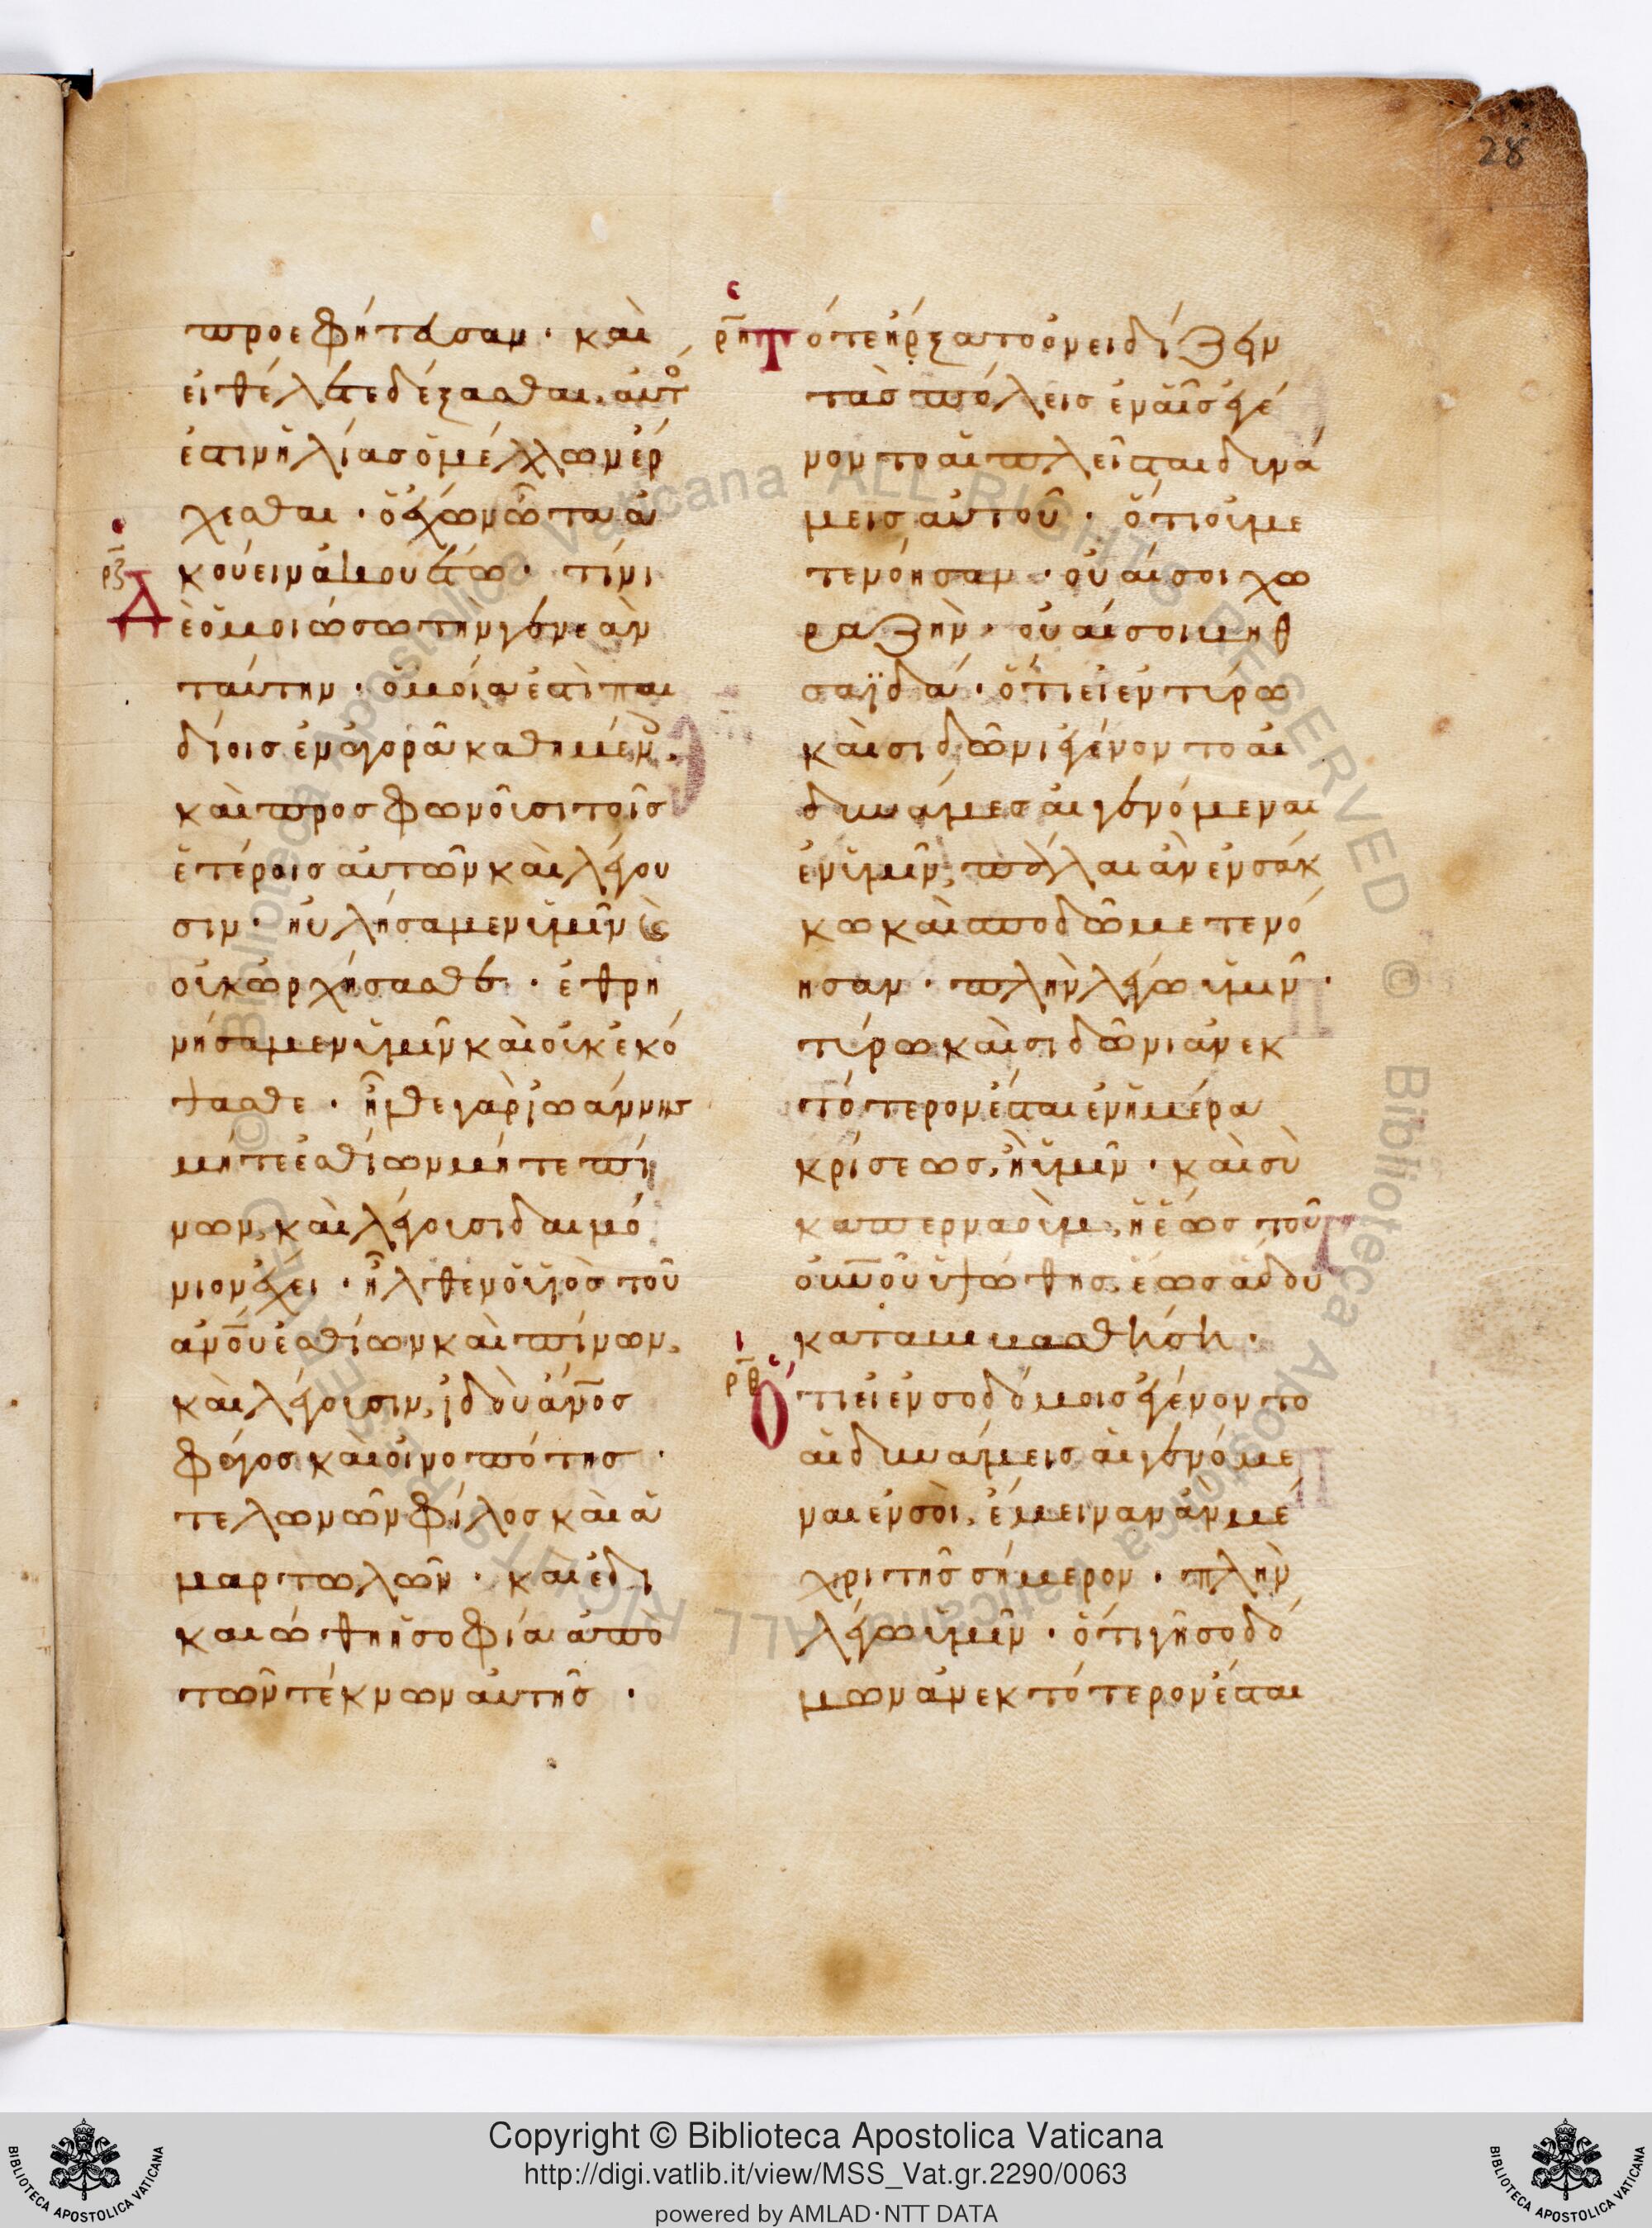 28
προεφήτευσαν · καὶ
εἰ θέλετε δέξασθαι, αὐτός
ἐστιν ἠλίας ὁ μέλλων ἔρ
χεσθαι · ὁ ἔχων ὦτα ἀ
κούειν ἀκουέτω · τίνι
ρζ
Δὲ ὁμοιώσω τὴν γενεὰν
ταύτην · ὁμοία ἐστὶ παι
δίοις ἐν ἀγορᾶ καθημένοις,
καὶ προσφωνοῦσι τοῖς
ἑτέροις αὐτῶν καὶ λέγου
σιν · ηὐλήσαμεν ὑμῖν καὶ
οὐκ ὠρχήσασθε · ἐθρη
νήσαμεν ὑμῖν καὶ οὐκ ἐκό
ψασθε · ἦλθε γὰρ ἰωάννης
μήτε ἐσθίων μήτε πί
νων, καὶ λέγουσι δαιμό
νιον ἔχει · ἦλθεν ὁ υἱὸς τοῦ
ἀνου ἐσθίων καὶ πίνων,
καὶ λέγουσιν, ἰδοὺ ἄνος
φάγος καὶ οἰνοπότης ·
τελωνῶν φίλος καὶ ἁ
μαρτωλῶν · καὶ ἐδι
καιώθη ἡ σοφία ἀπὸ
τῶν τέκνων αὐτῆς ·
ρη Τότε ἤρξατο ὀνειδίζειν
τὰς πόλεις ἐν αἷς ἐγέ
νοντο αἱ πλεῖσται δυνά
μεις αὐτοῦ · ὅτι οὐ με
τενόησαν · οὐαί σοι χω
ραζὴν, οὐαί σοι βηθ
σαϊδά · ὅτι εἰ ἐν τύρω
καὶ σιδῶνι ἐγένοντο αἱ
δυνάμεις αἱ γενόμεναι
ἐν ὑμῖν, πάλαι ἂν ἐν σάκ
κω καὶ σποδῶ μετενό
ησαν · πλὴν λέγω ὑμῖν ·
τύρω καὶ σιδῶνι ἀνεκ
τότερον ἔσται ἐν ἡμέρα
κρίσεως, ἢ ὑμῖν · καὶ σὺ
καπερναοὺμ, ἡ ἕως τοῦ
οὐνοῦ ὑψώθης, ἕως ἅδου
καταβιβασθήση ·
ρθ
Ὅτι εἰ ἐν σοδόμοις ἐγένοντο
αἱ δυνάμεις αἱ γενόμε
ναι ἐν σοὶ, ἔμειναν ἂν μέ
χρι τῆς σήμερον · πλὴν
λέγω ὑμῖν · ὅτι γῆ σοδό
μων ἀνεκτότερον ἔσται
Copyright © Biblioteca Apostolica Vaticana
http://digi.vatlib.it/view/MSS_Vat.gr.2290/0063
powered by AMLAD·NTT DATA
BIBLIOTECA APOSTOLICA VATICANA
BIBLIOTECA APOSTOLICA VATICANA